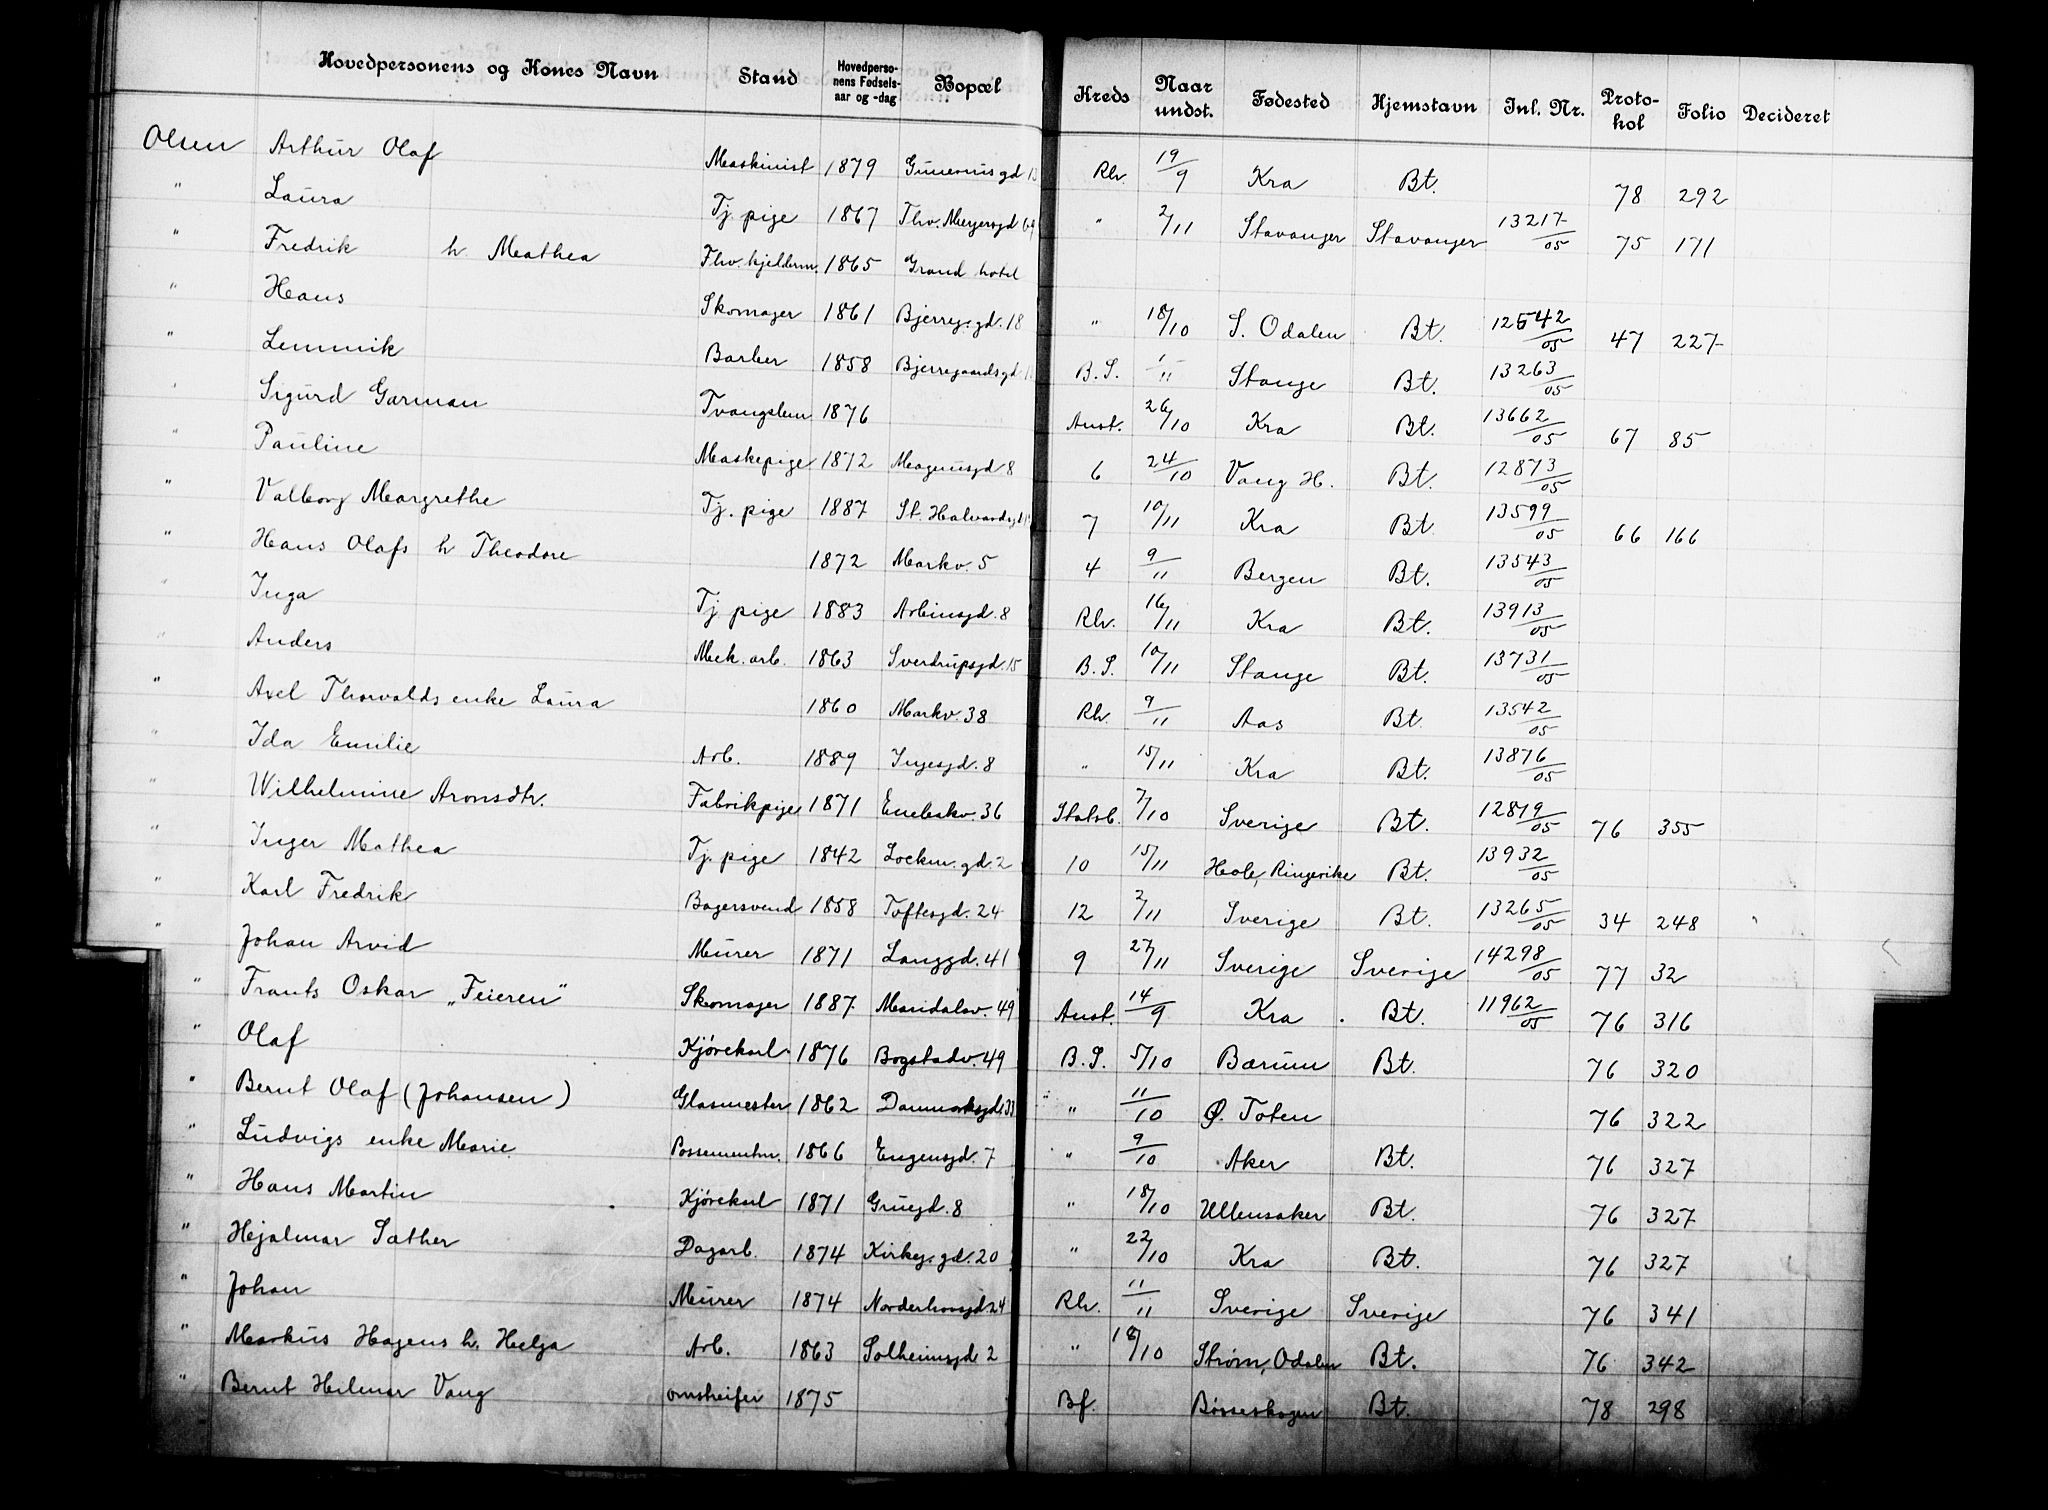 Hovedpersonens og Kones Navn | Stand | Hovedpersonens Fødselsaar og -dag | Bopæl | Kreds | Naar undst. | Fødested | Hjemstavn | Inl. Nr. | Protokol | Folio | Decideret
Olsen Arthur Olaf | Maskinist | 1879 | Gunerius gd | Rh. | 19/9 | Kra | Bt. | 78 | 292
" Laura | Tj. pige | 1867 | Thv. Meyersgd 69 | " | 2/11 | Stavanger | Stavanger | 13217/05 | 75 | 171
" Fredrik h Mathea | Fhv. kjelderm. | 1865 | Grand hotel
" Hans | Skomager | 1861 | Bjerreg. gd. 18 | " | 18/10 | S. Odalen | Bt. | 12542/05 | 47 | 227
" Lemmik | Barber | 1858 | Bjerregaardsgd | B. S. | 1/11 | Stange | Bt. | 13263/05
" Sigurd Garman | Tvangslem | 1876 | Anst. | 26/10 | Kra | Bt. | 13662/05 | 67 | 85
" Pauline | Maskepige | 1872 | Magnusgd 8 | 6 | 24/10 | Vang H. | Bt. | 12873/05
" Valborg Margrethe | Tj. pige | 1887 | St. Halvardsgd | 7 | 10/11 | Kra | Bt. | 13599/05 | 66 | 166
" Hans Olafs h Theodore | 1872 | Markv. 5 | 4 | 9/11 | Bergen | Bt. | 13543/05
" Inga | Tj. pige | 1883 | Arbinsgd. 8 | Rh. | 16/11 | Kra | Bt. | 13913/05
" Anders | Mek. arb. | 1863 | Sverdrupsgd. 15 | B. S. | 10/11 | Stange | Bt. | 13731/05
" Axel Thorvalds enke Laura | 1860 | Markv. 38 | Rh. | 9/11 | Aas | Bt. | 13542/05
" Ida Emilie | Arb. | 1889 | Ingesgd. 8 | " | 15/11 | Kra | Bt. | 13876/05
" Wilhelmine Aronsdtr. | Fabrikpige | 1871 | Enebakv. 36 | Statsb. | 7/10 | Sverige | Bt. | 12819/05 | 76 | 355
" Inger Mathea | Tj. pige | 1842 | Lockm. gd. 2 | 10 | 15/11 | Hole, Ringerike | Bt. | 13932/05
" Karl Fredrik | Bagersvend | 1858 | Toftesgd. 24 | 12 | 2/11 | Sverige | Bt. | 13265/05 | 34 | 248
" Johan Arvid | Murer | 1871 | Langgd. 41 | 9 | 27/11 | Sverige | Sverige | 14298/05 | 77 | 32
" Frants Oskar „Feieren" | Skomager | 1887 | Maridalsv. 49 | Anst. | 14/9 | Kra | Bt. | 11962/05 | 76 | 316
" Olaf | Kjørekarl | 1876 | Bogstadv. 49 | B. S. | 5/10 | Bærum | Bt. | 76 | 320
" Bernt Olaf (Johansen) | Glasmester | 1862 | Danmarksgd. 33 | " | 11/10 | Ø. Toten | 76 | 322
" Ludvigs enke Marie | Possementm. | 1866 | Engensgd. 7 | " | 9/10 | Aker | Bt. | 76 | 327
" Hans Martin | Kjørekarl | 1871 | Gruegd. 8 | " | 18/10 | Ullensaker | Bt. | 76 | 327
" Hjalmar Sæther | Dagarb. | 1874 | Kirkeg. gd. 20 | " | 22/10 | Kra | Bt. | 76 | 327
" Johan | Murer | 1874 | Norderhovsgd 24 | Rh. | 11/11 | Sverige | Sverige | 76 | 341
" Markus Hagens h. Helga | Arb. | 1863 | Solheimsgd 2 | " | 18/10 | Strøm, Odalen | Bt. | 76 | 342
" Bernt Hilmar Vang | omstreifer | 1875 | Bf. | Bt. | 78 | 298